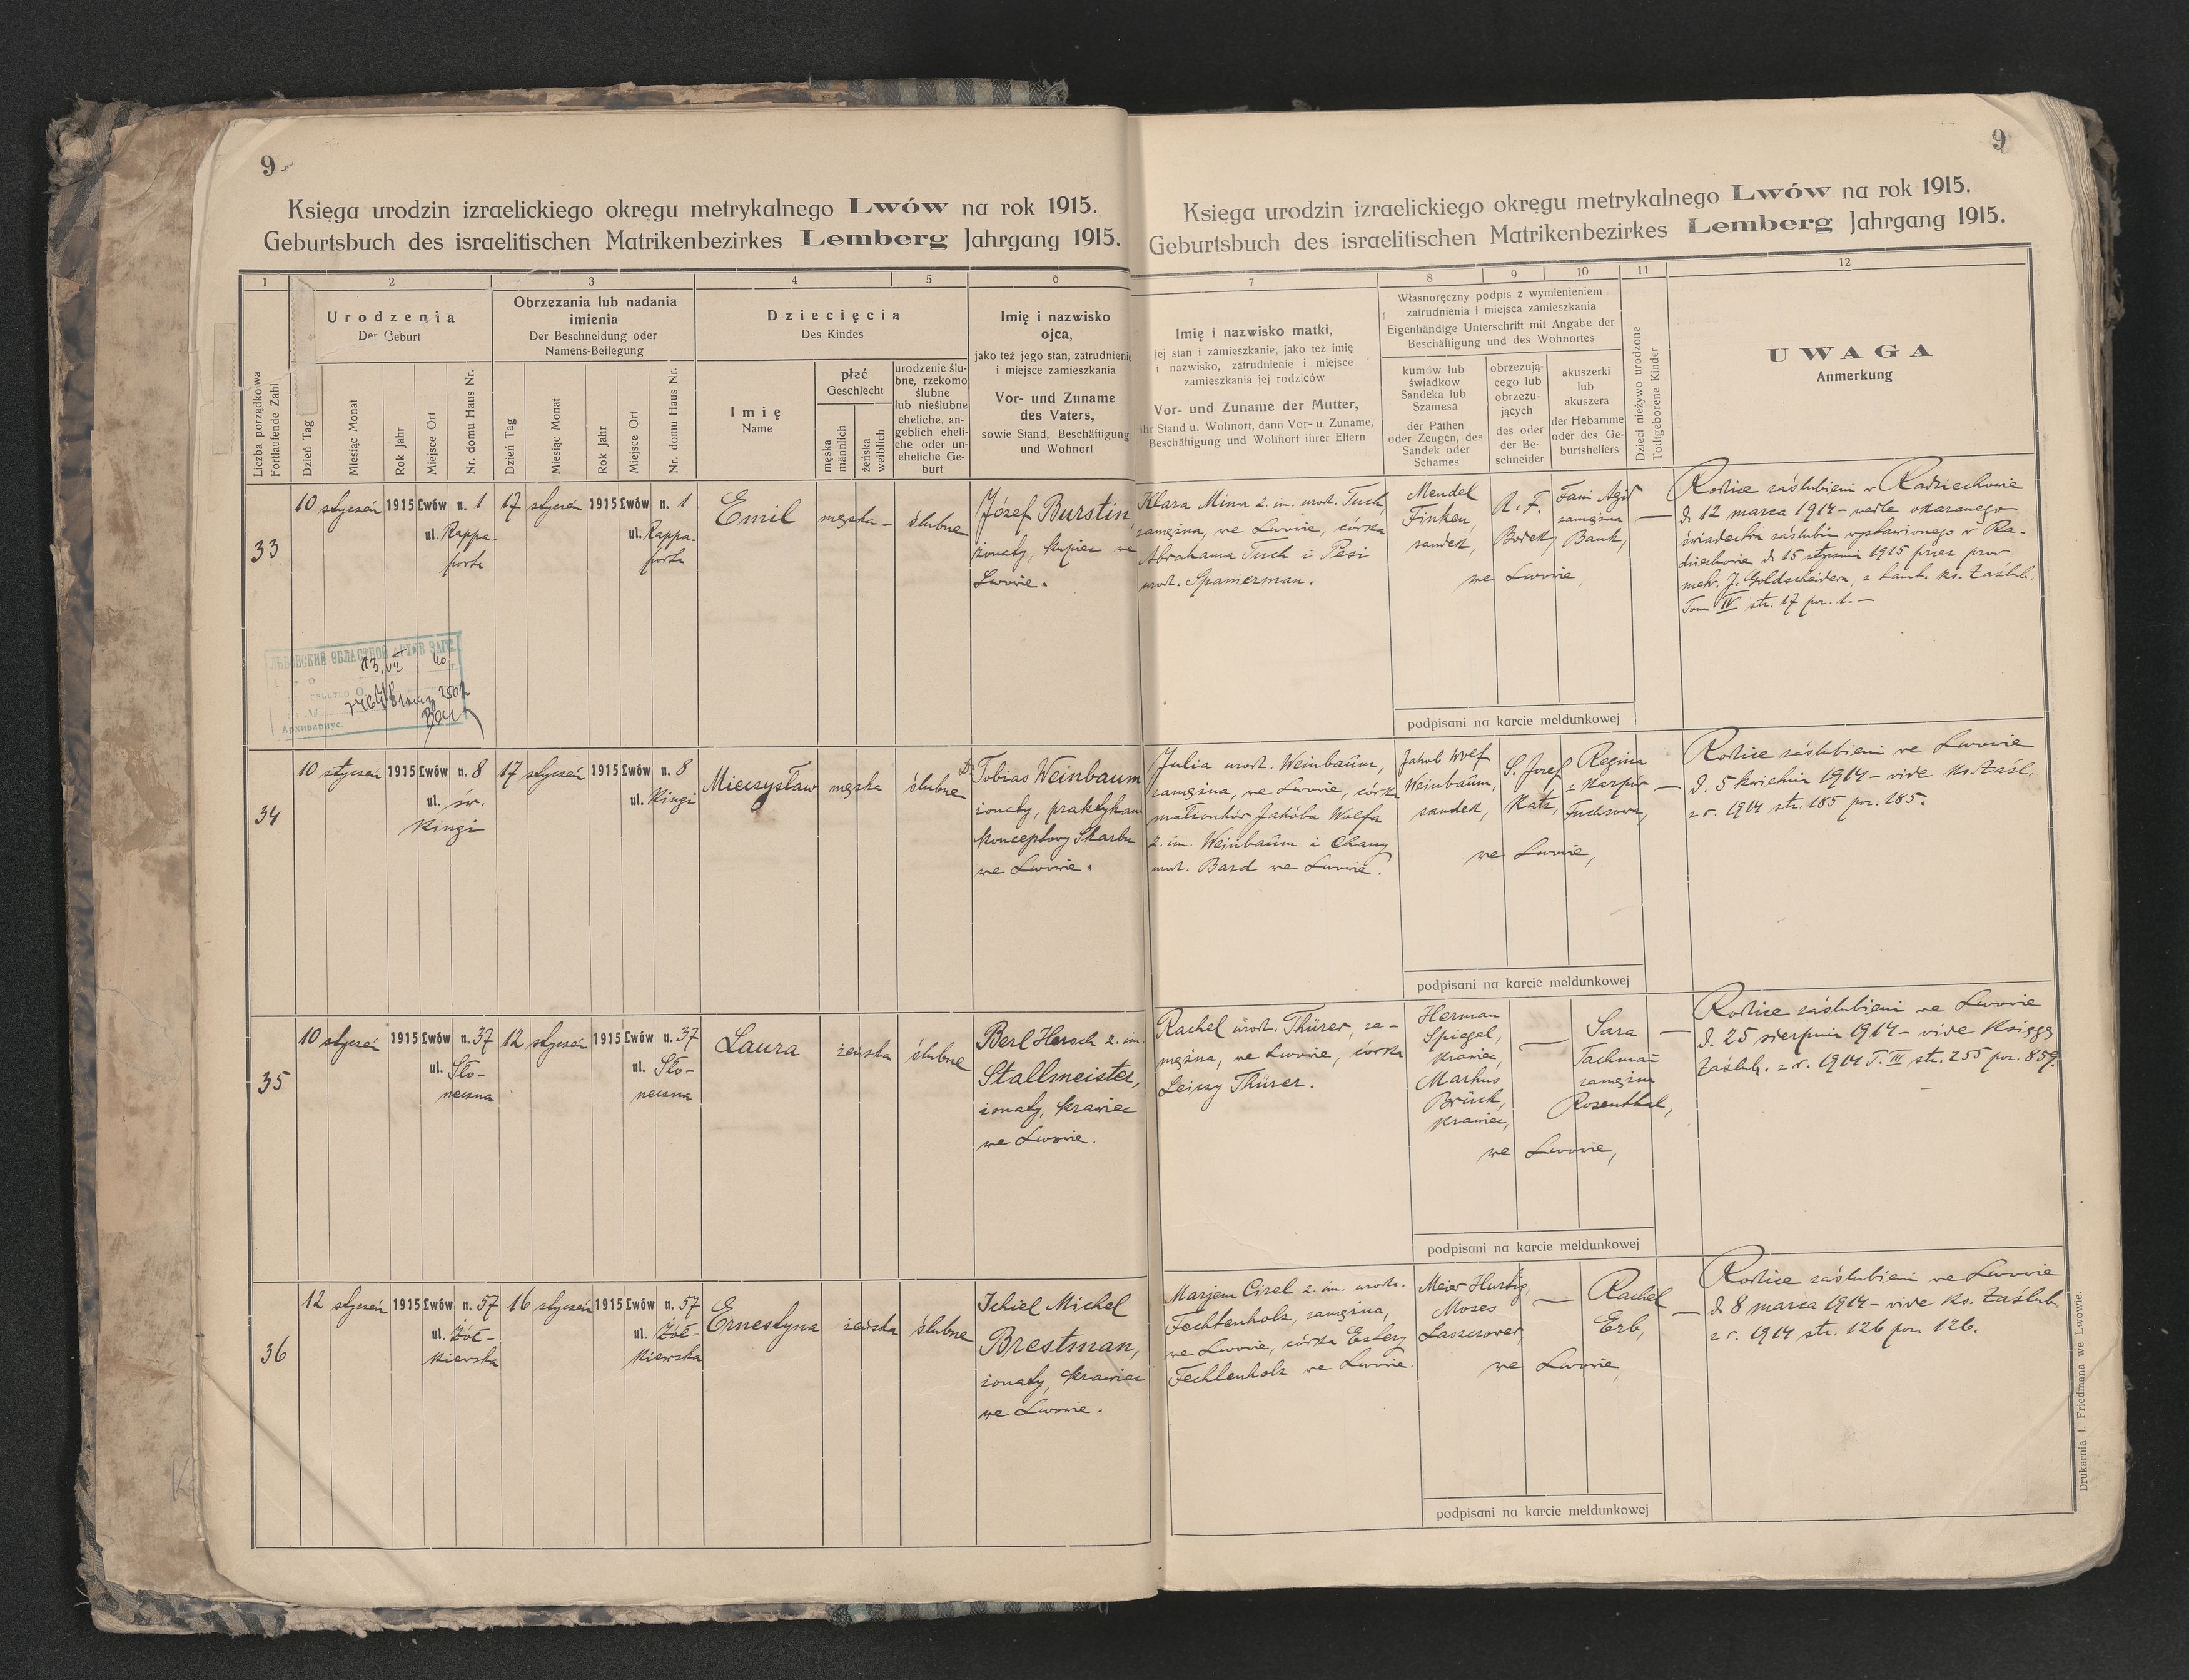 9
Księga urodzin izraelickiego okręgu metrykalnego Lwów na rok 1915.
Geburtsbuch des israelitischen Matrikenbezirkes Lemberg Jahrgang 1915.
1 2 3 4 5 6
Liczba porządkowa
Fortlaufende Zahl
Urodzenia
Der Geburt
Dzień Tag
Miesiąc Monat
Rok Jahr
Miejsce Ort
Nr. domu Haus Nr.
Obrzezania lub nadania
imienia
Der Beschneidung oder
Namens-Beilegung
Dzień Tag
Miesiąc Monat
Rok Jahr
Miejsce Ort
Nr. domu Haus Nr.
Dziecięcia
Des Kindes
Imię
Name
płeć
Geschlecht
męska
männlich
żeńska
weiblich
urodzenie ślu-
bne, rzekomo
ślubne
lub nieślubne
eheliche, an-
geblich eheli-
che oder un-
eheliche Ge-
burt
Imię i nazwisko
ojca,
jako też jego stan, zatrudnienie
i miejsce zamieszkania
Vor- und Zuname
des Vaters,
sowie Stand, Beschäftigung
und Wohnort
33
10 styczeń 1915 Lwów n. 1
ul. Rappa-
porta
17 styczeń 1915 Lwów n. 1
ul. Rappa-
porta
Emil
męska -
ślubne
Józef Burstin,
żonaty, kupiec we
Lwowie.
ЛЬВОВСКИЙ ОБЛАСТНОЙ АРХИВ ЗАГС
Архивариус
34
10 styczeń 1915 Lwów n. 8
ul. św.
Kingi
17 styczeń 1915 Lwów n. 8
ul. Kingi
Mieczysław
męska
ślubne
Dr Tobias Weinbaum
żonaty, praktykan
konceptowy Skarbu
we Lwowie.
35
10 styczeń 1915 Lwów n. 37
ul. Sło-
neczna
12 styczeń 1915 Lwów n. 37
ul. Sło-
neczna
Laura
żeńska
ślubne
Berl Hersch 2. im.
Stallmeister,
żonaty, krawiec
we Lwowie.
36
12 styczeń 1915 Lwów n. 57
ul. Żół-
kiewska
16 styczeń 1915 Lwów n. 57
ul. Żół-
kiewska
Ernestyna
żeńska
ślubne
Ichiel Michel
Brestman,
żonaty, krawiec
we Lwowie.
9
Księga urodzin izraelickiego okręgu metrykalnego Lwów na rok 1915.
Geburtsbuch des israelitischen Matrikenbezirkes Lemberg Jahrgang 1915.
7 8 9 10 11 12
Imię i nazwisko matki,
jej stan i zamieszkanie, jako też imię
i nazwisko, zatrudnienie i miejsce
zamieszkania jej rodziców
Vor- und Zuname der Mutter,
ihr Stand u. Wohnort, dann Vor- u. Zuname,
Beschäftigung und Wohnort ihrer Eltern
Własnoręczny podpis z wymienieniem
zatrudnienia i miejsca zamieszkania
Eigenhändige Unterschrift mit Angabe der
Beschäftigung und des Wohnortes
kumów lub
świadków
Sandeka lub
Szamesa
der Pathen
oder Zeugen, des
Sandek oder
Schames
obrzezują-
cego lub
obrzezu-
jących
des oder
der Be-
schneider
akuszerki
lub
akuszera
der Hebamme
oder des Ge-
burtshelfers
Dzieci nieżywo urodzone
Todtgeborene Kinder
UWAGA
Anmerkung
Klara Mina 2. im. urodz. Tuch,
zamężna, we Lwowie, córka
Abrahama Tuch i Pesi
urodz. Spanierman.
Mendel
Finken,
sandek,
A. F.
Bodek,
Fani Agid
zamężna
Bank,
we Lwowie,
—
Rodzice zaślubieni w Radziechowie
d. 12 marca 1914 - wedle okazanego
świadectwa zaślubin wystawionego w Ra-
dziechowie d. 15 stycznia 1915 przez prow.
metr. J. Goldscheidera, z tamt. ks. Zaślub.
Tom IV str. 17 poz. 1. —
podpisani na karcie meldunkowej
Julia urodz. Weinbaum,
zamężna, we Lwowie, córka
małżonków Jakóba Wolfa
2. im. Weinbaum i Chany
urodz. Bard we Lwowie.
Jakob Wolf
Weinbaum,
sandek,
S. Josef
Katz,
Regina
z Karpów
Fuchsowa,
we Lwowie,
—
Rodzice zaślubieni we Lwowie
d. 5 kwietnia 1914 - vide ks. Zaśl.
z r. 1914 str. 185 poz. 185.
podpisani na karcie meldunkowej
Rachel urodz. Thürer, za-
mężna, we Lwowie, córka
Leizy Thürer.
Herman
Spiegel,
krawiec,
Markus
Brück,
krawiec,
—
Sara
zamężna
Rosenthal,
we Lwowie,
—
Rodzice zaślubieni we Lwowie
d. 25 sierpnia 1914 - vide Księgę
Zaślub. z r. 1914 T. III str. 255 poz. 859.
podpisani na karcie meldunkowej
Marjem Cirel 2. im. urodz.
Fechtenholz, zamężna,
we Lwowie, córka Estery
Fechtenholz we Lwowie.
Meier Hurtig,
Moses
Laszczower,
—
Rachel
Erb,
we Lwowie,
—
Rodzice zaślubieni we Lwowie
d. 8 marca 1914 - vide ks. Zaślub.
z r. 1914 str. 126 poz. 126.
podpisani na karcie meldunkowej
Drukarnia I. Friedmana we Lwowie.